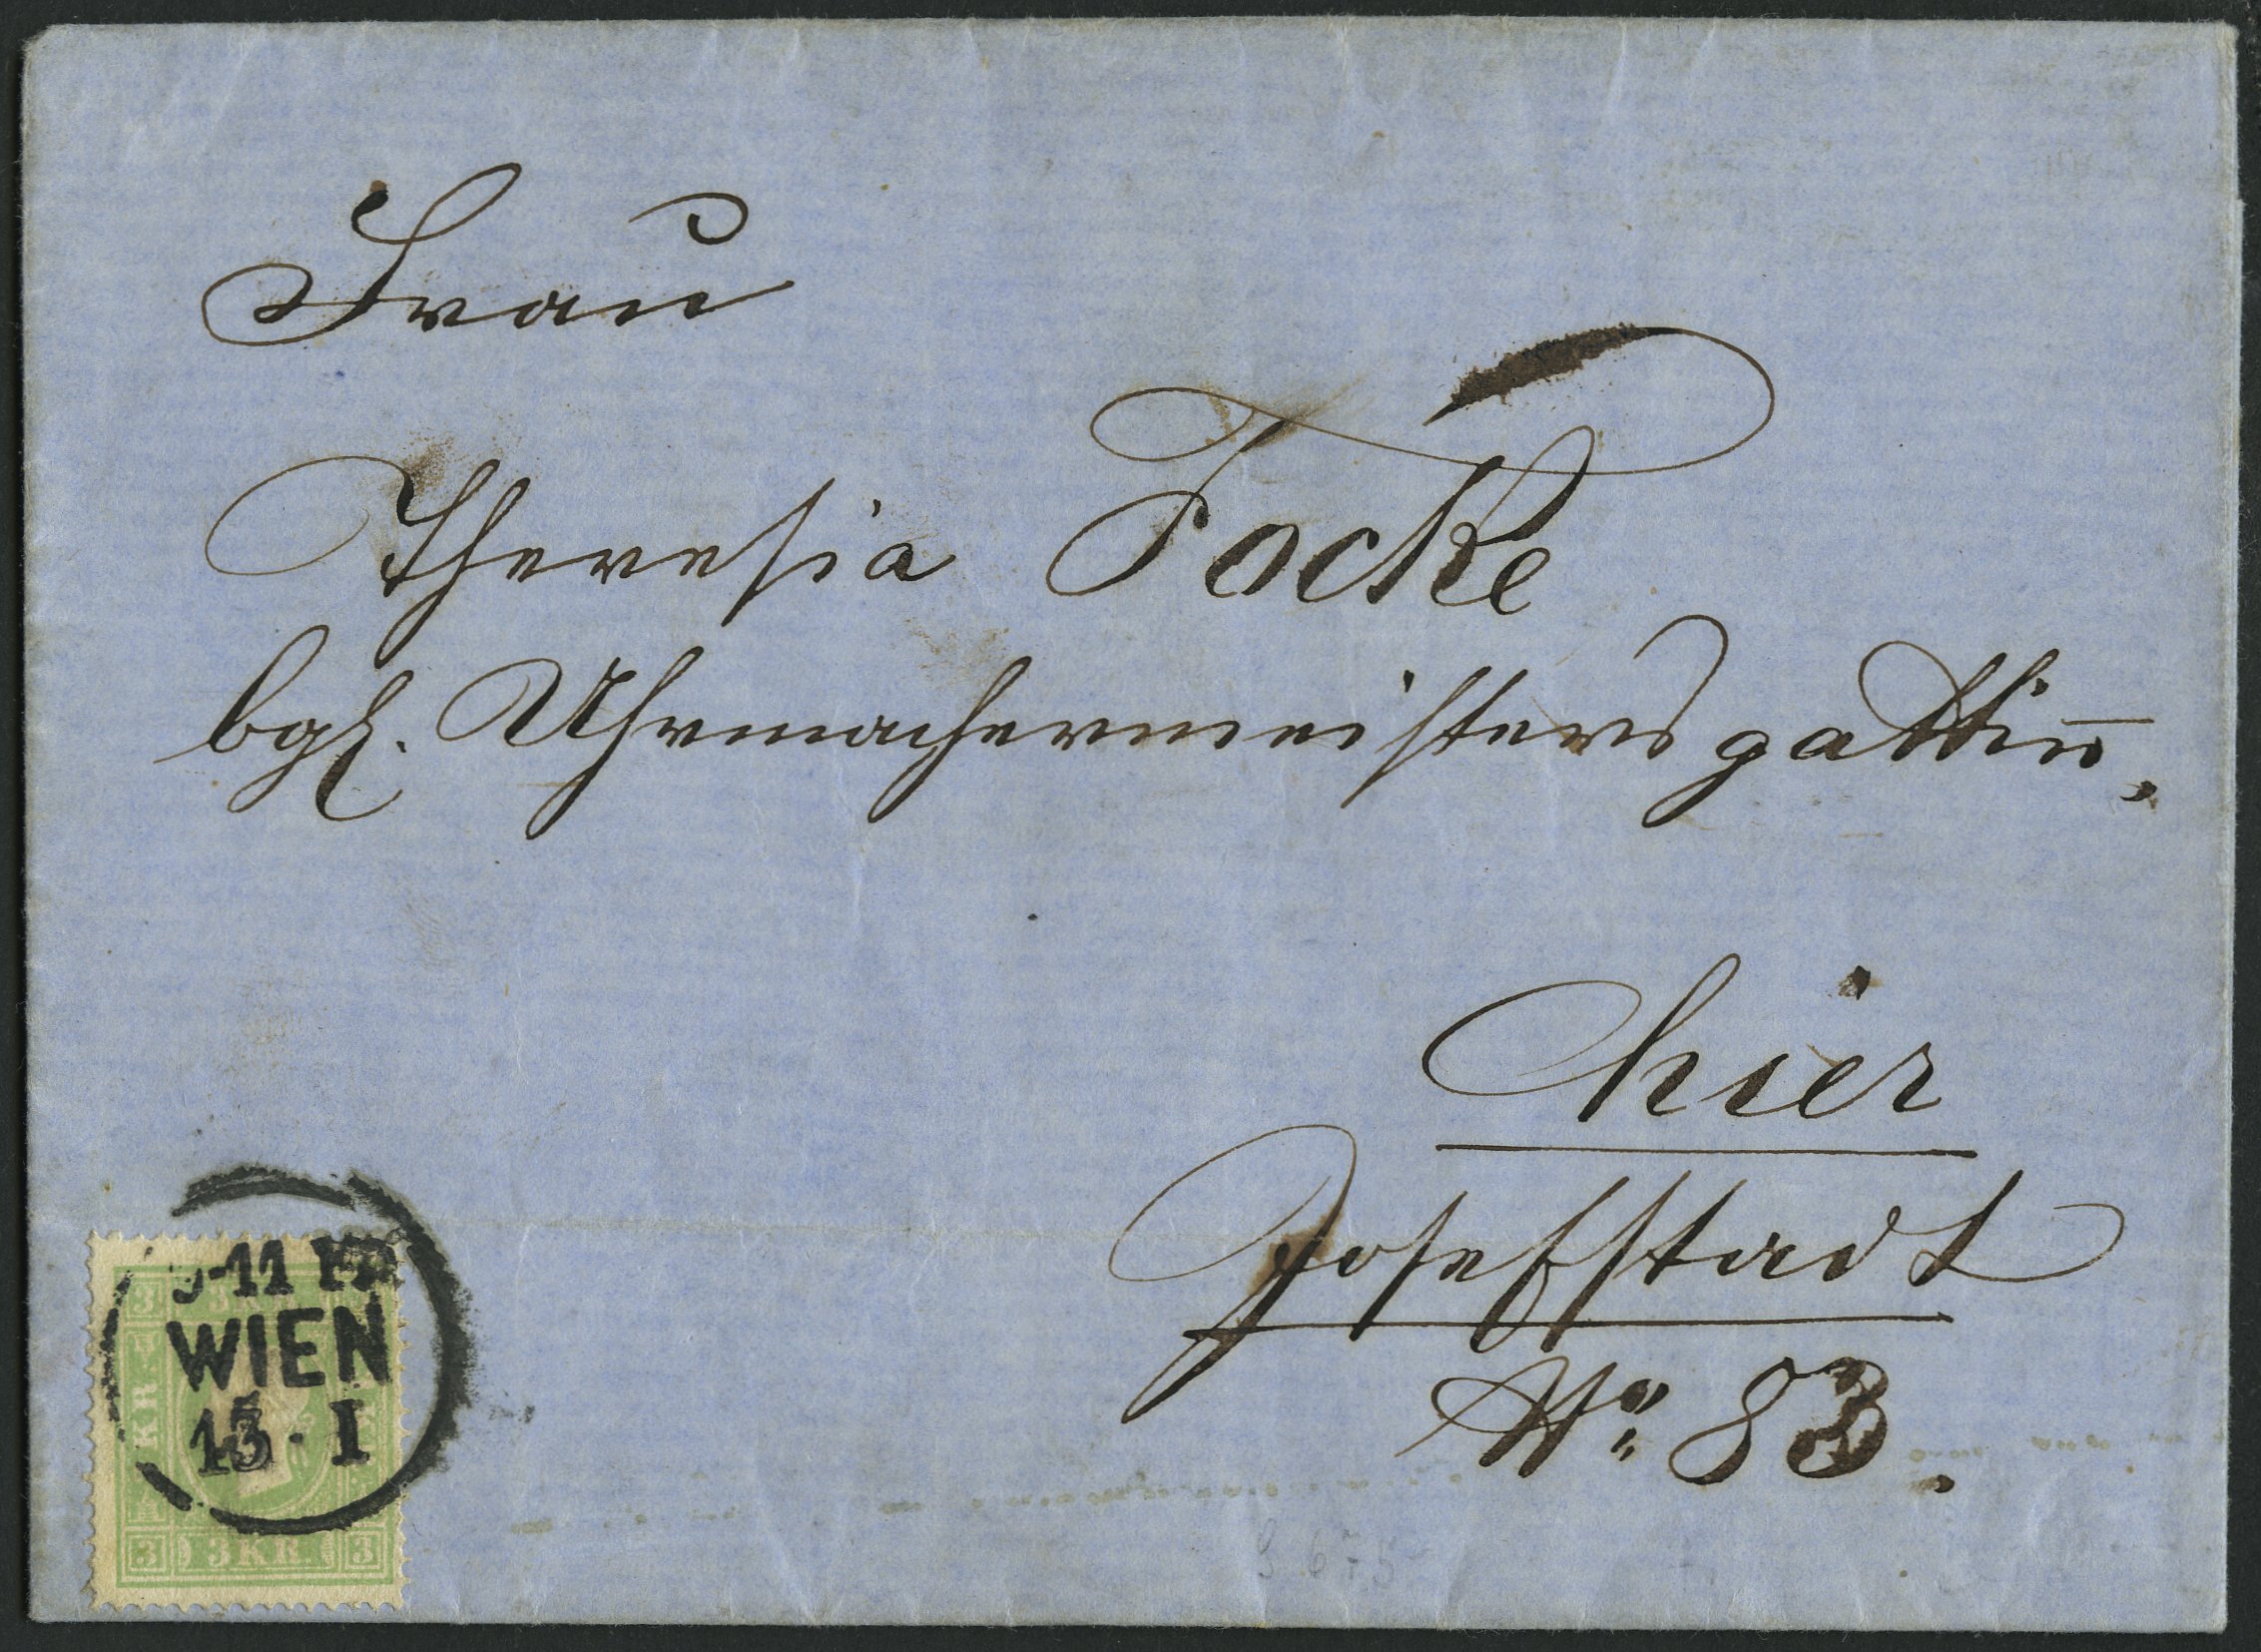 Frau
Theresia Focke
bgl. Uhrmachermeistersgattin̅.
hier
Josefstadt
No. 83.
9-11 FR
WIEN
13. I
3 3KR. 3